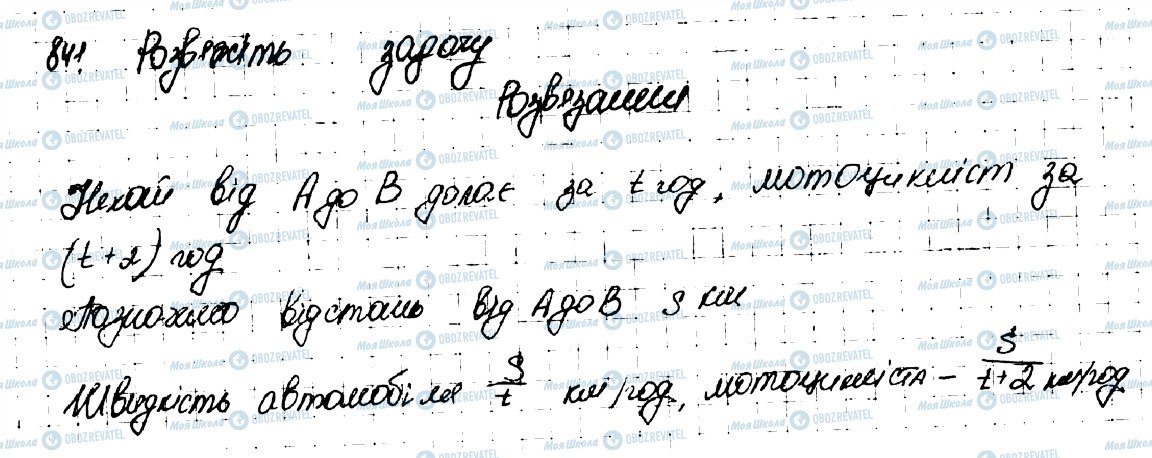 841. Розв'яжіть задачу
Розв'язання
Нехай від А до В долає за t год, мотоцикліст за
(t+2) год
Позначимо відстань від А до В S км
Швидкість автомобіля S/t км/год, мотоцикліста – S/t+2 км/год